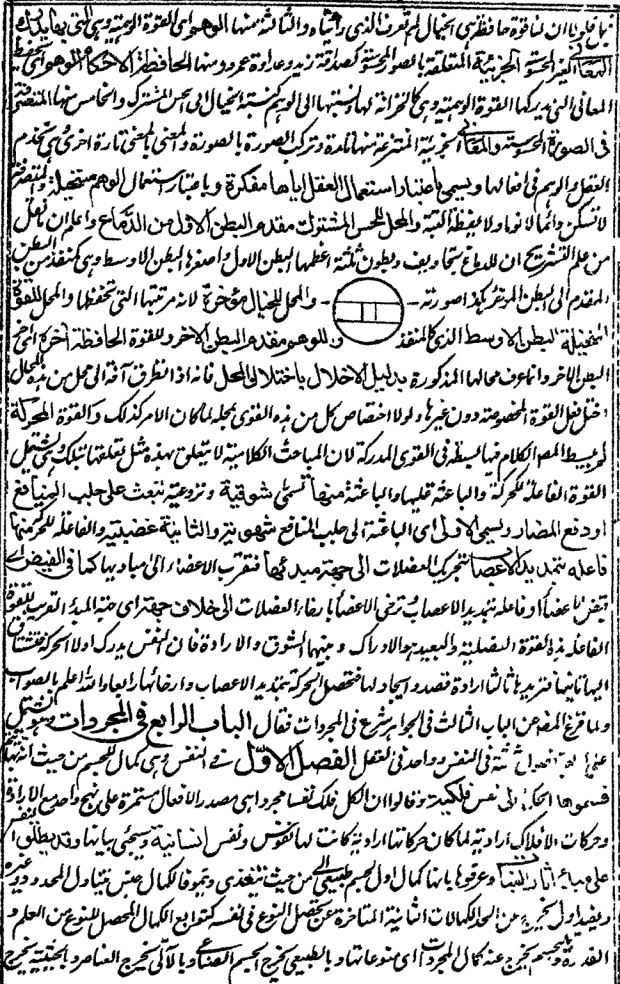 فاعلموا ان لنا قوة حافظة هى الخيال لم تعرف الذى رأيناه والثالثة منها الوهم اى القوة الوهمية وهى التى بها يدرك
المعانى الغير المحسوسة الجزئية المتعلقة بالصور المحسوسة كصداقة زيد وعداوة عمرو ومنها الحافظة لاحكام الوهم اى تحفظ
المعانى التى يدركها القوة الوهمية وهى كالخزانة لها ونسبتها الى الوهم كنسبة الخيال الى الحس المشترك والخامس منها المتصرفة
فى الصورة المحسوسة والمعانى الجزئية المنتزعة منها تارة وتركب الصورة بالصورة والمعنى بالمعنى تارة اخرى وهى تخدم
العقل والوهم فى افعالها ويسمى باعتبار استعمال العقل اياها مفكرة وباعتبار استعمال الوهم متخيلة والمتصرفة
لا تسكن دائما لا نوما ولا يقظة البتة والمحل للحس المشترك مقدم البطن الاول من الدماغ واعلم ان
من علم التشريح ان للدماغ تجاويف وبطون ثلثة اعظمها البطن الاول واصغرها البطن الاوسط وهى كمنفذ من البطن
المقدم الى البطن المؤخر بهذا صورته والمحل للخيال مؤخره لانه مرتبتها التى تحفظها والمحل للقوة
المتخيلة البطن الاوسط الذى كالمنفذ وللوهم مقدم البطن الآخر وللقوة الحافظة آخره اى آخر
البطن الآخر وانما عرف محالها المذكورة بدليل الاختلال باختلال المحل فانه اذا تطرق آفة الى محل من هذه المحال
اختل فعل القوة المخصوصة دون غيرها ولولا اختصاص كل من هذه القوى بمحله لما كان الامر كذلك والقوة المحركة
لم يبسط المصـ الكلام فيها بسطه فى القوى المدركة لان المباحث الكلامية لا يتعلق بهذه مثل تعلقها بتلك وهى يشتمل
القوة الفاعلة للحركة والباعثة عليها والباعثة منها تسمى شوقية ونزوعية تبعث على جلب المنافع
او دفع المضار ويسمى الاولى اى الباعثة الى جلب المنافع شهوية والثانية غضبية والفاعلة للحركة منها
فاعلة بتمديد الاعصاب بتحريك العضلات الى جهة مبدئها فتقرب الاعضاء الى مباديها كما فى القبض
او فاعلة بتمديد الاعصاب ترخى الاعصاب بارخاء العضلات الى خلاف جهتها اى جهة المبدأ القريب للقوة
الفاعلة هذه القوة العضلية والبعيدة والادراك وبينهما الشوق والارادة فان النفس يدرك اولا الحركة فتشتاق
اليها ثانيا فتريدها ثالثا ارادة قصد وايجاد لها فتحصل الحركة بتمديد الاعصاب وارخائها رابعا والله اعلم بالصواب
ولما فرغ المصـ عن الباب الثالث فى الجواهر شرع فى المجردات فقال الباب الرابع فى المجردات وهو يشتمل
على اربعة فصول ثلثة فى النفس وواحد فى العقل الفصل الاول فى النفس وهى كمال للجسم من حيث انه
قسموها الحكماء الى نفس فلكية وقالوا ان لكل فلك نفسا مجردا هى مصدر الافعال مستمرة على نهج واحد مع الارادة
وحركات الافلاك ارادية لما كان حركاتها ارادية كانت لها نفوس ونفس انسانية وسيجئ بيانها وقد يطلق النفس
على مبادئ آثار النبات وعرفوها بانها كمال اول لجسم طبيعى آلى من حيث يتغذى وينمو فالكمال جنس يتناول المحدود وغيره
وبقيد اول يخرج عن الحد الكمالات الثانية المتأخرة عن تحصل النوع فى نفسه كتوابع الكمال المحصل للنوع من العلم و
القدرة وبجسم يخرج عنه كمال المجردات اى منوعاتها وبالطبيعى يخرج الجسم الصناعى وبالآلى يخرج العناصر وبالحيثية يخرج